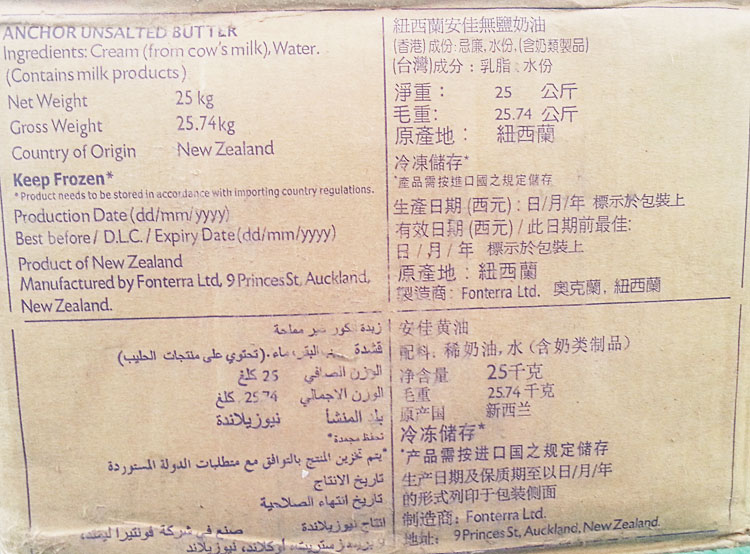 ANCHOR UNSALTED BUTTER
Ingredients: Cream (from cow's milk), Water.
(Contains milk products)
Net Weight 25 kg
Gross Weight 25.74kg
Country of Origin New Zealand
Keep Frozen*
*Product needs to be stored in accordance with importing country regulations.
Production Date (dd/mm/yyyy)
Best before / D.L.C. / Expiry Date (dd/mm/yyyy)
Product of New Zealand
Manufactured by Fonterra Ltd, 9 Princes St, Auckland,
New Zealand.
紐西蘭安佳無鹽奶油
(香港)成份:忌廉,水份,(含奶類製品)
(台灣)成分:乳脂、水份
淨重: 25 公斤
毛重: 25.74 公斤
原產地: 紐西蘭
冷凍儲存*
*產品需按進口國之規定儲存
生產日期(西元):日/月/年 標示於包裝上
有效日期(西元)/此日期前最佳:
日/月/年 標示於包裝上
原產地:紐西蘭
製造商:Fonterra Ltd. 奧克蘭,紐西蘭
زبدة نكور غير مملحة
قشدة من حليب البقر، ماء. (تحتوي على منتجات الحليب)
الوزن الصافي 25 كلغ
الوزن الاجمالي 25.74 كلغ
بلد المنشأ نيوزيلاندة
تحفظ مجمدة*
*يتم تخزين المنتج بالتوافق مع متطلبات الدولة المستوردة
تاريخ الانتاج
تاريخ انتهاء الصلاحية
انتاج نيوزيلاندة
صنع في شركة فونتيرا ليمتد،
برنسز ستريت، أوكلاند، نيوزيلاند
安佳黄油
配料: 稀奶油,水(含奶类制品)
净含量 25千克
毛重 25.74 千克
原产国 新西兰
冷冻储存*
*产品需按进口国之规定储存
生产日期及保质期至以日/月/年
的形式列印于包装侧面
制造商:Fonterra Ltd.
地址: 9 Princes St, Auckland, New Zealand.